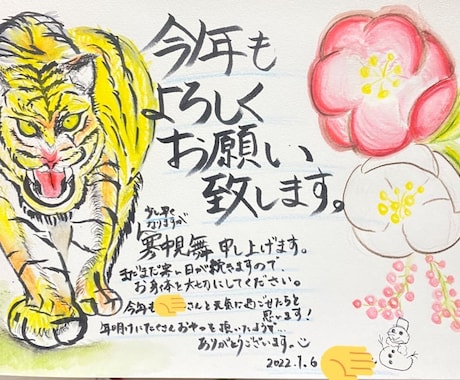 今年も
よろしく
お願い
致します。
少し早く
なりますが
寒中見舞申し上げます。
まだまだ寒い日が続きますので、
お身体を大切にしてください。
今年も さんと元気に過ごせたらと
思います！
年明けにたくさんおやつを頂いたようで…
ありがとうございます。
2022.1.6